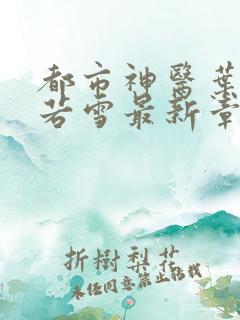 都市神醫葉
若雪最新章
折樹梨花
未经同意禁止转载